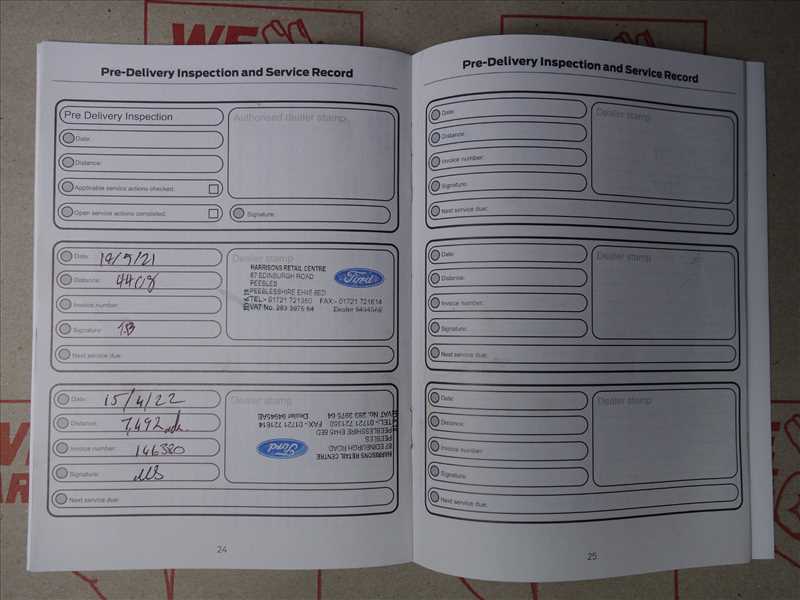 WE
Pre-Delivery Inspection and Service Record
Pre Delivery Inspection
Date:
Distance:
Applicable service actions checked:
Open service actions completed:
Authorised dealer stamp
Signature:
Date: 19/5/21
Distance: 4408
Invoice number:
Signature: T.B
Next service due:
Dealer stamp
HARRISONS RETAIL CENTRE
67 EDINBURGH ROAD
PEEBLES
PEEBLESSHIRE EH45 8ED
TEL:- 01721 721350 FAX:- 01721 721614
VAT No. 283 3975 64 Dealer 94945AE
Ford
Date: 15/4/22
Distance: 7,492 mls
Invoice number: 146380
Signature:
Next service due:
Dealer stamp
HARRISONS RETAIL CENTRE
67 EDINBURGH ROAD
PEEBLES
PEEBLESSHIRE EH45 8ED
TEL:- 01721 721350 FAX:- 01721 721614
VAT No. 283 3975 64 Dealer 94945AE
Ford
24
Pre-Delivery Inspection and Service Record
Date:
Distance:
Invoice number:
Signature:
Next service due:
Dealer stamp
Date:
Distance:
Invoice number:
Signature:
Next service due:
Dealer stamp
Date:
Distance:
Invoice number:
Signature:
Next service due:
Dealer stamp
25